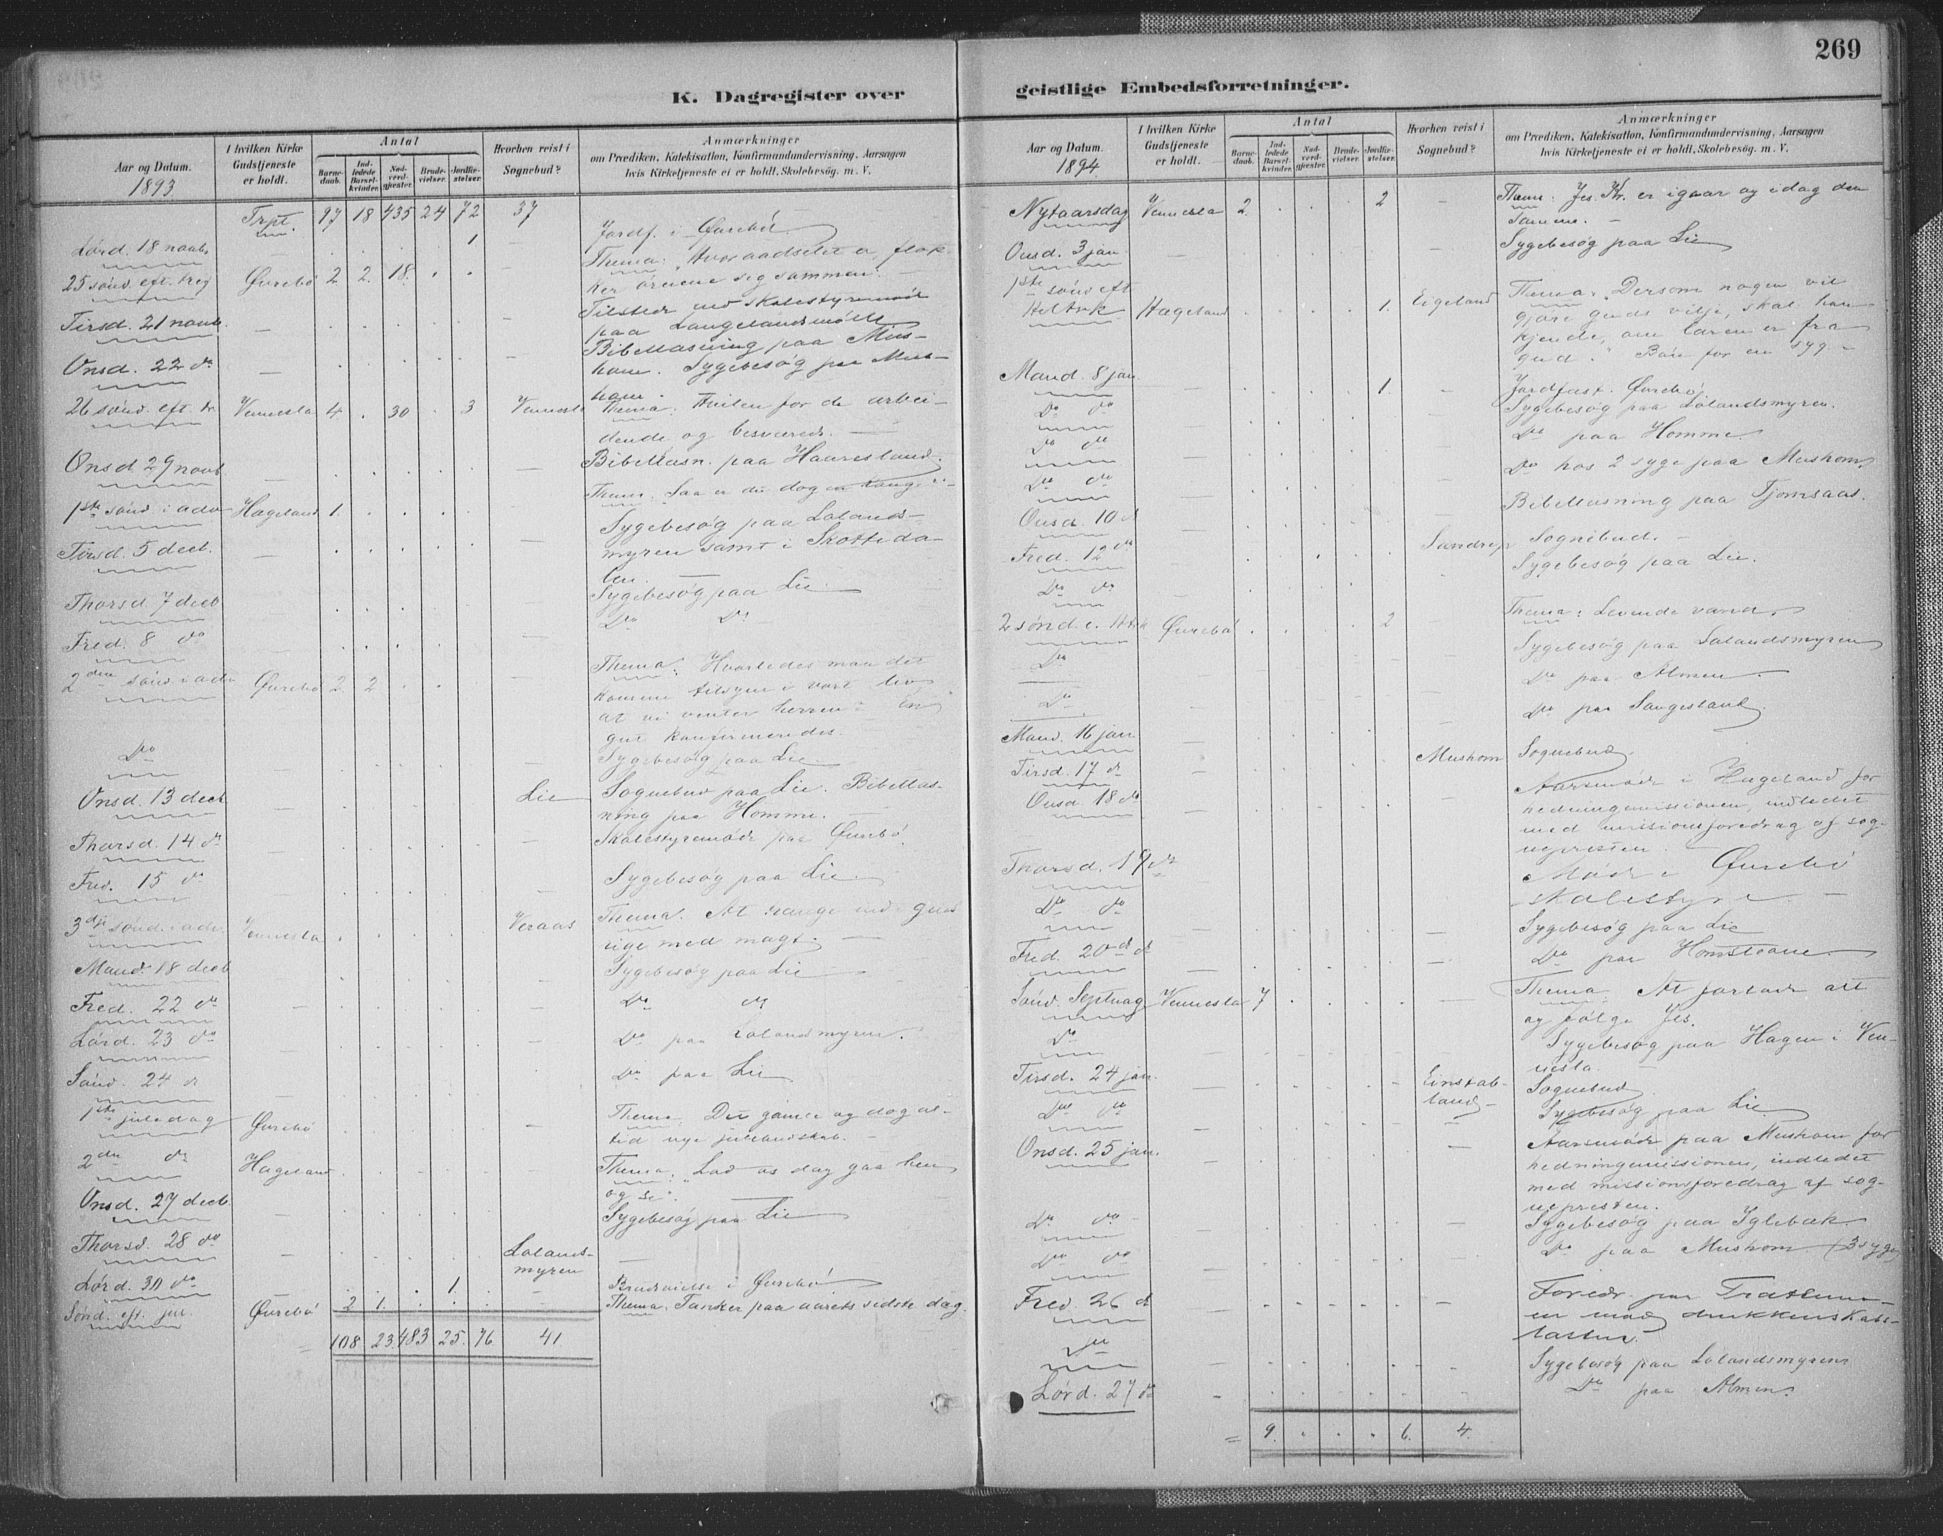 269
K. Dagregister over geistlige Embedsforretninger.
Aar og Datum. 1893.
I hvilken Kirke Gudstjeneste er holdt.
Antal
Barnedaab.
Indledede Barselkvinder.
Nadverdgjester.
Brudevielser.
Jordfæstelser.
Hvorhen reist i Sognebud?
Anmærkninger
om Prædiken, Katekisation, Konfirmandundervisning, Aarsagen
hvis Kirketjeneste ei er holdt, Skolebesøg. m. V.
Trpt. 97 18 435 24 72 37
Lørd. 18 novb. 1 Jordf. i Øvrebø
25 sønd. eft. treg Øvrebø 2 2 18 Thema: "Hvor aadselet er, flok-
ker ørnene sig sammen."
Tirsd. 21 novb. Tilstede ved skolestyremøde
paa Langelandsmøllt
Onsd. 22 do Bibellæsning paa Mus-
hom. Sygebesøg paa Mus-
hom.
26 sønd. eft. tr. Vennesla 4 30 3 Vennesla Thema: Hvilen for de arbei-
dende og besværede.
Onsd 29 novb Bibellæsn. paa Haaresland.
1ste sønd i adv Hægeland 1. Thema: Saa er du dog en konge
Tirsd. 5 decb. Sygebesøg paa Lolands-
myren samt i Skotteda-
len.
Thorsd 7 decb Sygebesøg paa Lie
Fred. 8 do Do Do
2den sønd i adv Øvrebø 2 2 Thema: Hvorledes maa det
komme tilsyne i vort liv,
at vi venter herren? En
gut konfirmeredes.
Do Sygebesøg paa Lie
Onsd. 13 decb Lie Sognebud paa Lie. Bibellæs-
ning paa Homme.
Thorsd. 14 do Skolestyremøde paa Øvrebø.
Fred. 15 do Sygebesøg paa Lie.
3dje sønd. i adv. Vennesla Veraas Thema: At trænge ind i guds
rige med magt.
Mand. 18 decb Sygebesøg paa Lie
Fred. 22 do Do do
Lørd. 23 do Do paa Lolandsmyren.
Sønd. 24 do Do paa Lie
1ste juledag Øvrebø Thema: Det gamle og dog al-
tid nye julebudskab.
2den do Hægeland Thema: "Lad os dog gaa hen
og se".
Onsd. 27 decb. Sygebesøg paa Lie
Thorsd. 28 do Lolands-
myren
Lørd. 30 do 1. Brudevielse i Øvrebø
Sønd. eft. jul. Øvrebø 2 1. Thema: Tanker paa aarets sidste dag.
= 108. 23. 483. 25. 76 41.
Aar og Datum. 1894
I hvilken Kirke Gudstjeneste er holdt.
Antal
Barnedaab.
Indledede Barselkvinder.
Nadverdgjester.
Brudevielser.
Jordfæstelser.
Hvorhen reist i Sognebud?
Anmærkninger
om Prædiken, Katekisation, Konfirmandundervisning, Aarsagen
hvis Kirketjeneste ei er holdt, Skolebesøg. m. V.
Nytaarsdag Vennesla 2. 2 Thema: Jes. Kr. er igaar og idag den
samme.
Onsd. 3 jan Sygebesøg paa Lie
1ste sønd eft
Hel3k Hægeland 1. Eigeland Thema: "Dersom nogen vil
gjøre guds vilje, skal han
kjende, om læren er fra
gud". Bøn for en syg.
Mand. 8 jan 1. Jordfæst. Øvrebø
Do do Sygebesøg paa Lolandsmyren.
Do do Do paa Homme
Do do Do hos 2 syge paa Mushom.
Onsd. 10 do Bibellæsning paa Tjomsaas.
Fred. 12 do Sandrip Sognebud.
Do do Sygebesøg paa Lie.
2 sønd e. H3k Øvrebø 2 Thema: Levende vand.
Do Sygebesøg paa Lolandsmyren
Do Do paa Almen.
Mand. 16 jan Do paa Langeland
Tirsd. 17 do Mushom Sognebud.
Onsd. 18 do Aarsmøde i Hægeland for
hedningemissionen, indledet
med missionsforedrag af sog-
nepresten.
Thorsd. 19 do Møde i Øvrebø
skolestyre
Do do Sygebesøg paa Lie
Fred. 20 do Do paa
Sønd. Septuag Vennesla 7 Thema: At forlade alt
og følge Jes.
Do Sygebesøg paa Hagen i Ven-
nesla.
Tirsd. 24 jan. Einstab-
land Sognebud
Do do Sygebesøg paa Lie
Onsd. 25 jan. Aarsmøde paa Mushom for
hedningemissionen, indledet
med missionsforedrag af sog-
nepresten.
Do do Sygebesøg paa Iglebæk
Do do Do paa Mushom (3 syge)
Fred. 26 do Foredr. paa
mod drukkenskabs-
lasten.
Do Sygebesøg paa Lolandsmyren
Lørd. 27 do Do paa Almen.
= 9. 6. 4.